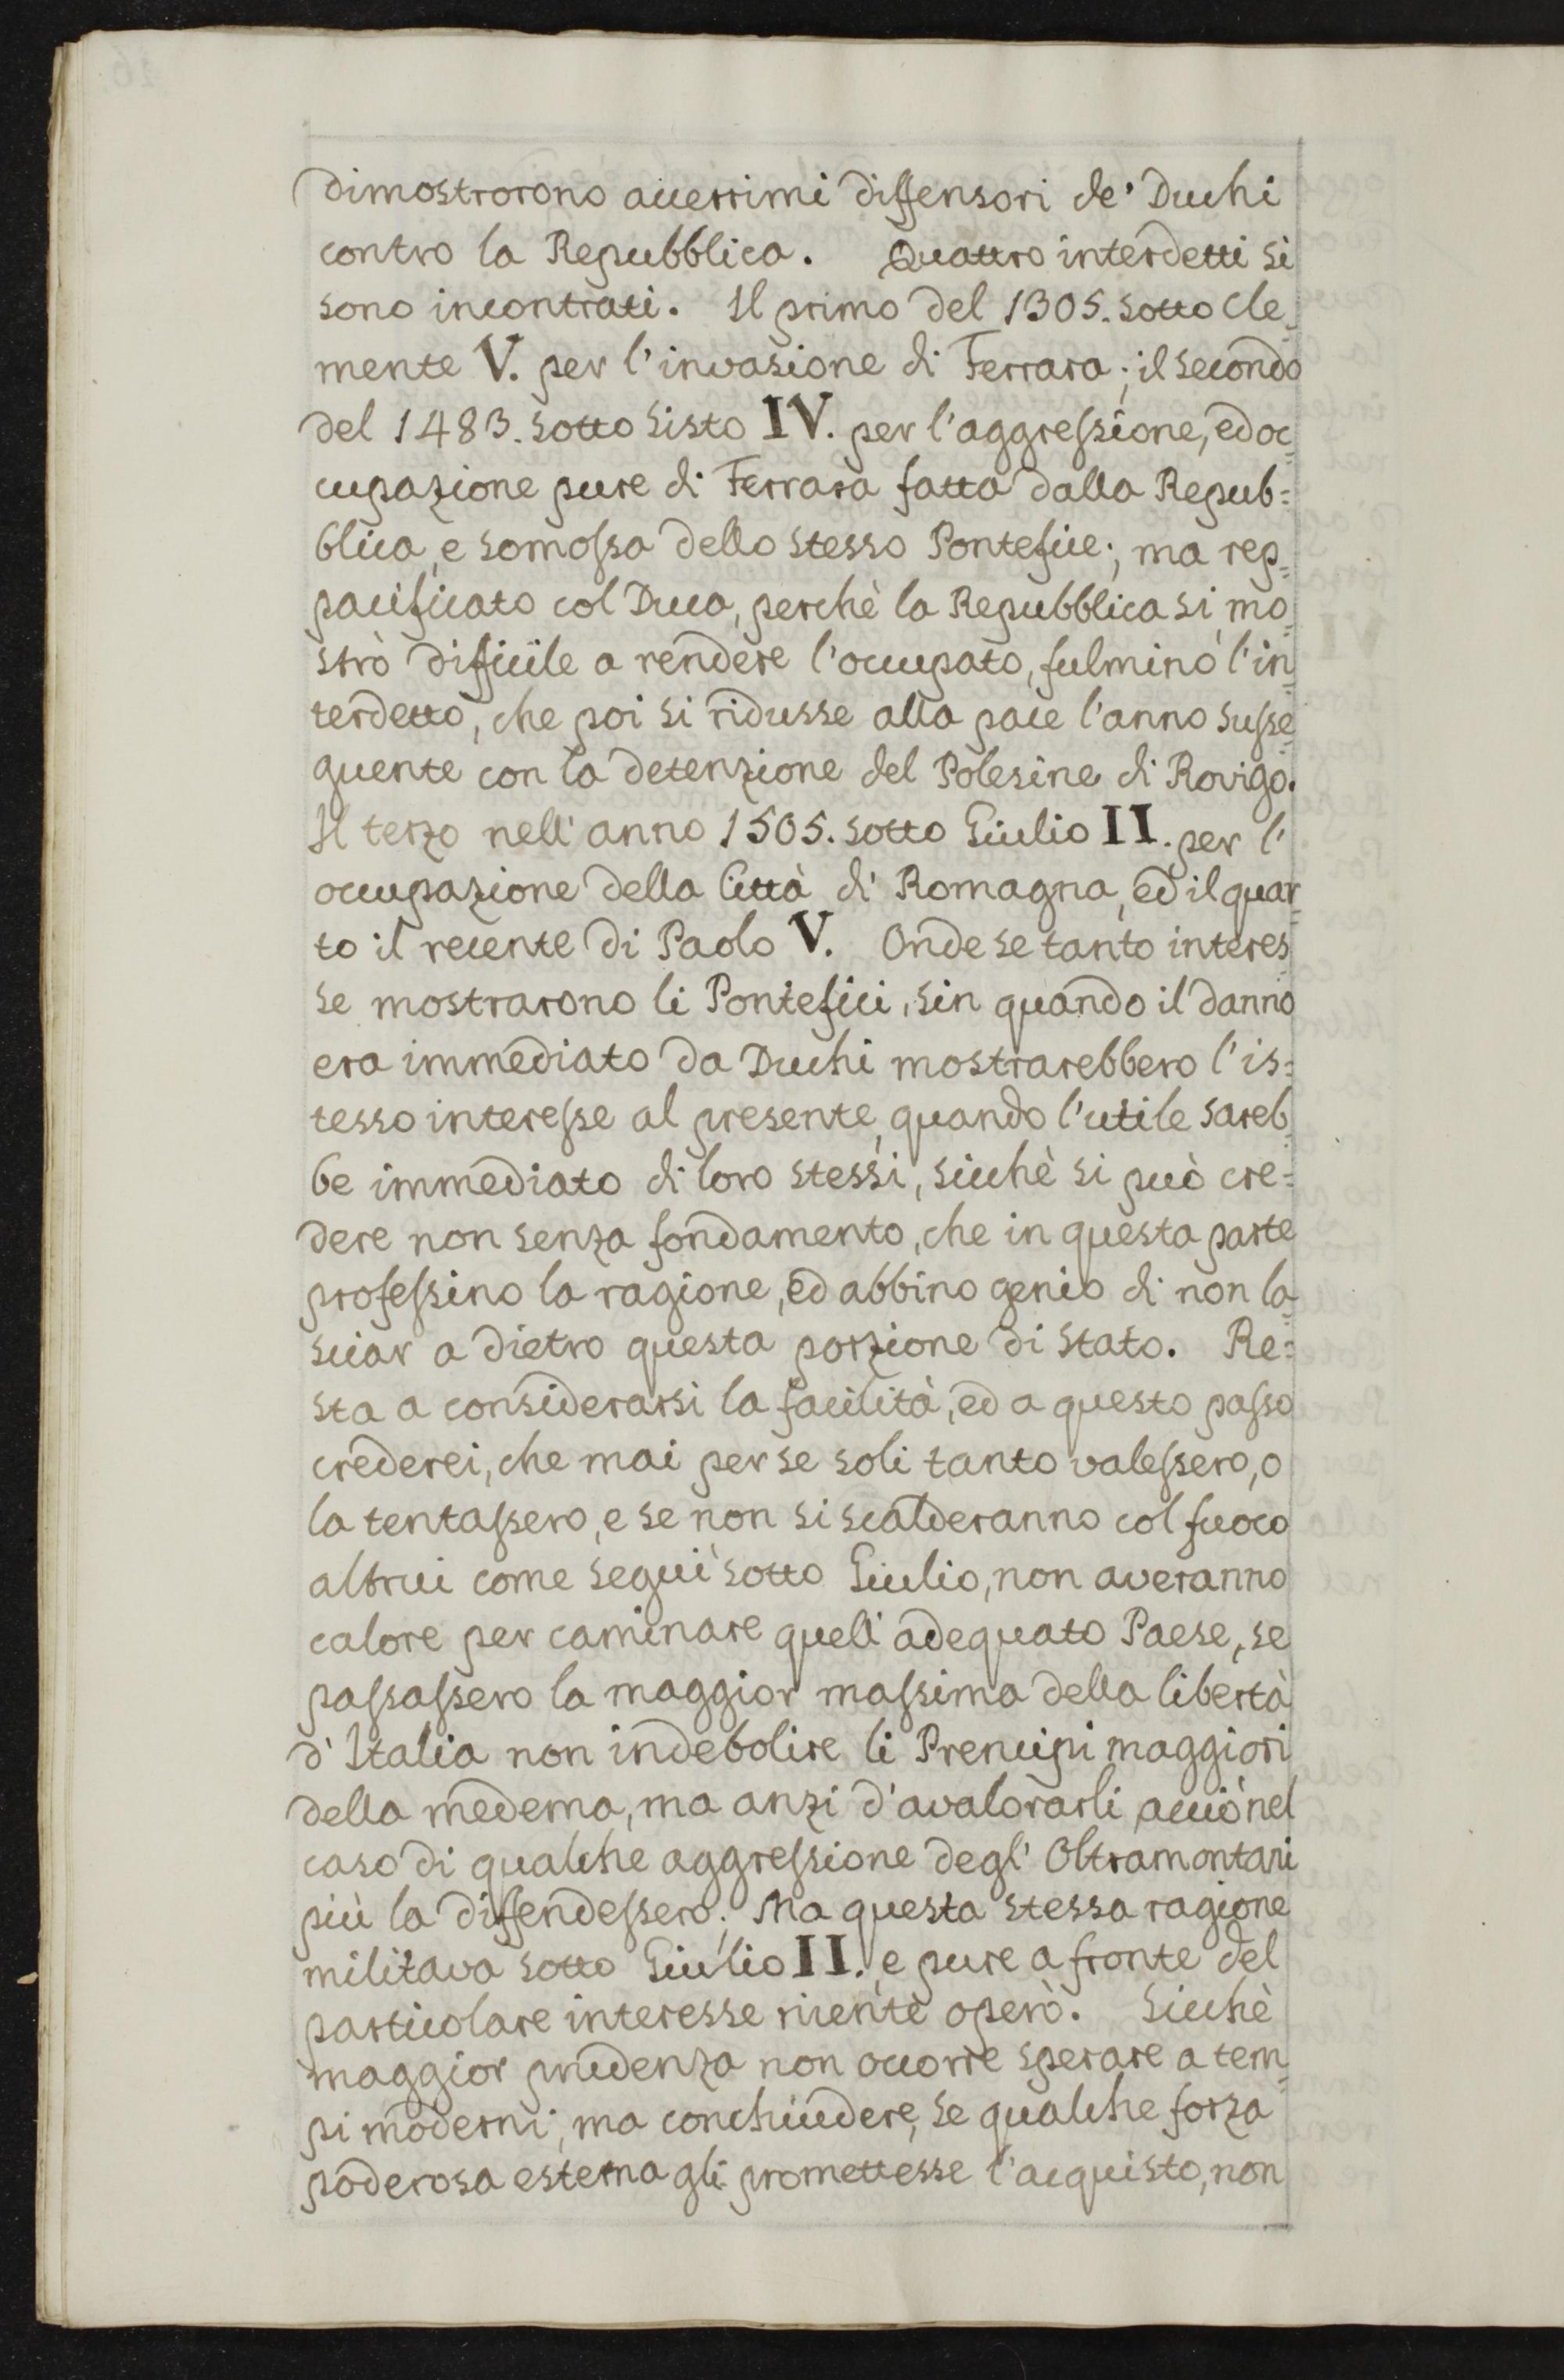 dimostrorono acerrimi diffensori de' Duchi
contro la Repubblica. Quattro interdetti si
sono incontrati. Il primo del 1305. sotto Cle=
mente V. per l'invasione di Ferrara; il secondo
del 1483. sotto Sisto IV. per l'aggressione, ed oc=
cupazione pure di Ferrara fatta dalla Repub=
blica, e somossa dello stesso Pontefice; ma rep=
pacificato col Duca, perchè la Repubblica si mo=
strò difficile a rendere l'occupato, fulminò l'in=
terdetto, che poi si ridusse alla pace l'anno susse=
quente con la detenzione del Polesine di Rovigo.
Il terzo nell'anno 1505. sotto Giulio II. per l'
occupazione della Città di Romagna, ed il quar=
to il recente di Paolo V. Onde se tanto interes=
se mostrarono li Pontefici, sin quando il danno
era immediato da Duchi mostrarebbero l'is=
tesso interesse al presente, quando l'utile sareb=
be immediato di loro stessi, sicchè si può cre=
dere non senza fondamento, che in questa parte
professino la ragione, ed abbino genio di non la=
sciar a dietro questa porzione di Stato. Re=
sta a considerarsi la facilità, ed a questo passo
crederei, che mai per se soli tanto valessero, o
la tentassero, e se non si scalderanno col fuoco
altrui come seguì sotto Giulio, non averanno
calore per caminare quell'adequato Paese, se
passassero la maggior massima della libertà
d'Italia non indebolire li Prencipi maggiori
della medema, ma anzi d'avalorarli acciò nel
caso di qualche aggressione degl'Oltramontani
più la diffendessero; Ma questa stessa ragione
militava sotto Giulio II. e pure a fronte del
particolare interesse niente operò. Sicchè
maggior prudenza non occorre sperare a tem=
pi moderni; ma conchiudere, se qualche forza
poderosa esterna gli promettesse l'acquisto, non